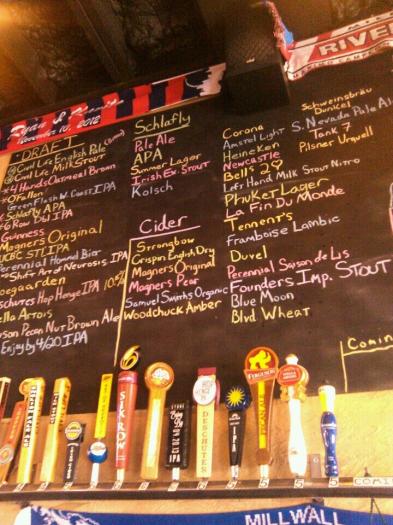 Ryan & 
November 10, 2012
RIVER
DRAFT
Civil Life English Pale
Civil Life Milk Stout
4 Hands Oatmeal Brown
O'Fallon
Green Flash W. Coast IPA
Schlafly APA
6 Row Dbl IPA
Guinness
Magners Original
UCBC STL IPA
Perennial Hommel Bier
Shift Art of Neurosis IPA
Hoegaarden
Deschutes Hop Henge IPA 10%
Stella Artois
Pecan Nut Brown Ale
Enjoy by 4/20 IPA
Schlafly
Pale Ale
APA
Summer Lagar
Irish Ex. Stout
Kolsch
Cider
Strongbow
Crispin English Dry
Magners Original
Magners Pear
Samuel Smiths Organic
Woodchuck Amber
Corona
Amstel Light
Heineken
Newcastle
Bell's 2
Left Hand Milk Stout Nitro
Phuket Lager
La Fin Du Monde
Tennent's
Framboise Lambic
Duvel
Perennial Saison de Lis
Founders Imp. Stout
Blue Moon
Blvd Wheat
Schweinsbräu
Dunkel
S. Nevada Pale Ale
Tank 7
Pilsner Urquell
Comin
6
SIX ROW
STONE
Enjoy By
04.20.13
IPA
DESCHUTES
IPA
FERGUSON
5
5
5
COMI
MILLWALL